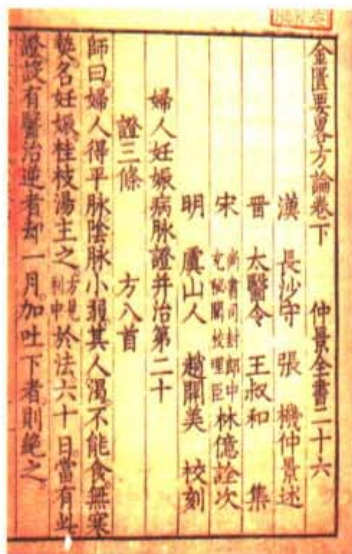 金匱要畧方論卷下　仲景全書二十六
漢　長沙守　張　機仲景述
晉　太醫令　王叔和　集
宋　尚書司封郎中充秘閣校理臣林億詮次
明　虞山人　趙開美　校刻
婦人妊娠病脉證并治第二十
證三條　方八首
師曰婦人得平脉陰脉小弱其人渴不能食無寒
熱名妊娠桂枝湯主之方見利中於法六十日當有此
證設有醫治逆者却一月加吐下者則絶之